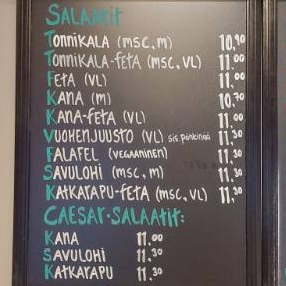 SALAATIT
TONNIKALA (MSC, M) 10,90
TONNIKALA-FETA (MSC, VL) 11,00
FETA (VL) 11,00
KANA (M) 10,70
KANA-FETA (VL) 11,00
VUOHENJUUSTO (VL) sis. pähkinää 11,30
FALAFEL (VEGAANINEN) 11,30
SAVULOHI (MSC, M) 11,30
KATKARAPU-FETA (MSC, VL) 11,30
CAESAR-SALAATIT:
KANA 11,00
SAVULOHI 11,30
KATKARAPU 11,30